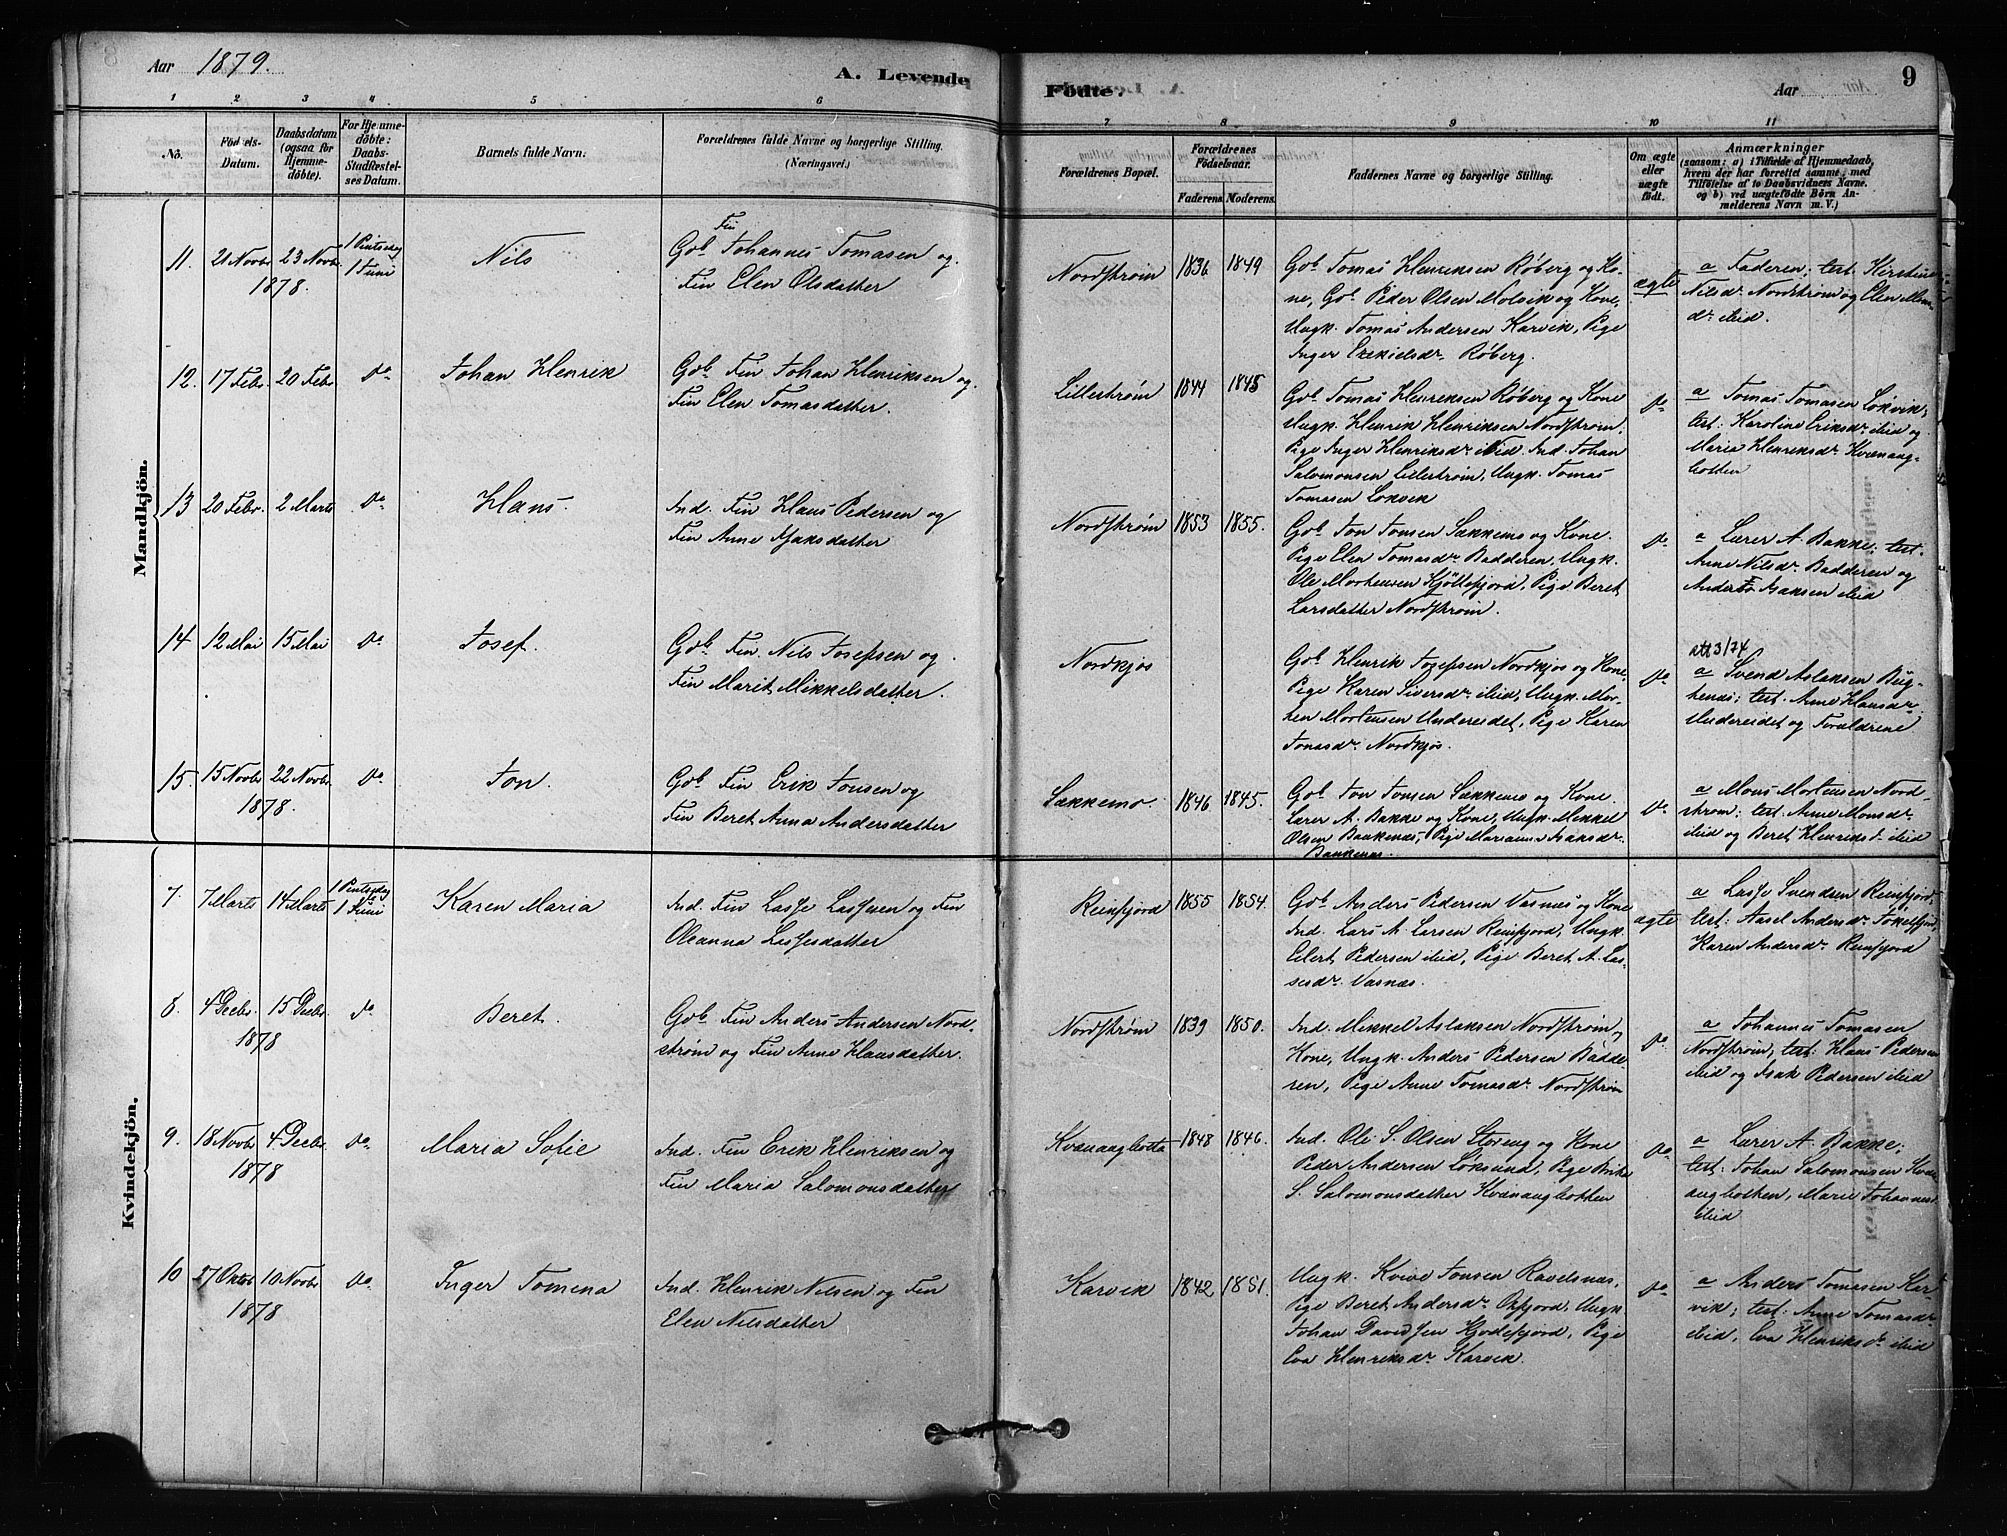 Aar 1879.
A. Levende
Fødte.
Aar
9
1 2 3 4 5 6 7 8 9 10 11
No.
Fødsels-
Datum.
Daabsdatum
(ogsaa for
Hjemme-
döbte).
For Hjemme-
döbte:
Daabs-
Stadfæstel-
ses Datum.
Barnets fulde Navn.
Forældrenes fulde Navne og borgerlige Stilling.
(Næringsvei.)
Forældrenes Bopæl.
Forældrenes
Födselsaar.
Faderens Moderens
Faddernes Navne og borgerlige Stilling.
Om ægte
eller
uægte
født.
Anmærkninger
(saasom: a) i Tilfælde af Hjemmedaab,
hvem der har forrettet samme, med
Tilføielse af to Daabsvidners Navne,
og b) ved uægtefødte Börn An-
melderens Navn m. V.)
Mandkjön.
11. 21 Novbr 23 Novbr 1878. 1 Pintsedag 1 Juni
Nils
Gbr Fin Johannes Tomasen og
Fin Elen Olsdatter
Nordstrøm 1836 1849
Gbr Tomas Henriksen Røberg og Ko-
ne, Gbr Peder Olsen Molvik og Kone,
Ungk. Tomas Andersen Karvik, Pige
Inger Ezekielsdr Røberg.
ægte
a Faderen; test. Kirstine
Nilsdr Nordstrøm og Elen Mons-
dr ibid.
12. 17 Febr 20 Febr do
Johan Henrik
Gbr Fin Johan Henriksen og
Fin Elen Tomasdatter.
Lillestrøm 1844 1848
Gbr Tomas Henriksen Røberg og Kone
Ungk. Henrik Henriksen Nordstrøm,
Pige Inger Henriksdr ibid. Ind. Johan
Salomonsen Lillestrøm, Ungk. Tomas
Tomasen Lokvik
do
a Tomas Tomasen Lokvik;
test: Karoline Eriksdr ibid og
Maria Henriksdr Kvænang-
botten
13 20 Febr. 2 Marts do
Hans.
Ind. Fin Hans Pedersen og
Fin Anne Isaksdatter
Nordstrøm 1853 1855.
Gbr Jon Jonsen Sækkemo og Kone.
Pige Elen Tomasdr Badderen, Ungk.
Ole Mortensen Kjøllefjord, Pige Beret
Larsdatter Nordstrøm.
do
a Lærer A. Bakke; test.
Anne Nilsdr Badderen og
Anders Isaksen ibid
14 12 Mai 15 Mai do
Josef.
Gbr Fin. Nils Josefsen og
Fin Marit Mikkelsdatter.
Nordkjos
Gbr Henrik Josefsen Nordkjos og Kone,
Pige Karen Siversdr ibid, Ungk. Mor-
ten Mortensen Undereidet, Pige Karen
Jonasdr Nordkjos.
do
att 3/74
a Svend Aslaksen Bug-
tenæs; test. Anne Hansdr
Undereidet og Forældrene
15. 15 Novbr 22 Novbr 1878. do
Jon.
Gbr Fin Erik Jonsen og
Fin Beret Anna Andersdatter
Sækkemo. 1846 1845.
Gbr Jon Jonsen Sækkemo og Kone.
Lærer A. Bakke og Kone, Ungk. Mikkel
Olsen Bankenæs, Pige Mariane Isaksdr
Bankenæs.
do
a Mons Mortensen Nord-
strøm; test: Anne Monsdr
ibid og Beret Henriksdr ibid
Kvindekjön.
7. 7 Marts 14 Marts 1 Pintsedag 1 Juni
Karen Maria
Ind. Fin Lasse Lassesen og Fin
Oleanna Lassesdatter
Reinfjord 1855 1854.
Gbr Anders Pedersen Vasnæs og Kone
Ind. Lars A. Larsen Reinfjord, Ungk.
Eilert Pedersen ibid, Pige Beret A. Las-
sesdr Vasnæs
ægte
a Lasse Svendsen Reinfjord,
test: Aasel Andersdr Jøkelfjord,
Karen Andersdr Reinfjord
8. 4 Decbr. 15 Decbr 1878 do
Beret.
Gbr Fin Anders Andersen Nord-
strøm og Fin Anne Hansdatter.
Nordstrøm 1839 1850.
Ind. Mikkel Aslaksen Nordstrøm,
Kone, Ungk. Anders Pedersen Badde-
ren, Pige Anne Tomasdr Nordstrøm
do
a Johannes Tomasen
Nordstrøm, test: Hans Pedersen
ibid og Isak Pedersen ibid
9. 18 Novbr 4 Decbr. 1878 do
Maria Sofie
Ind. Fin Erik Henriksen og
Fin Maria Salomonsdatter
Kvænangbotten 1848 1846.
Ind. Ole S. Olsen Storeng og Kone
Peder Andersen Løksund, Pige Brita
S. Salomonsdatter Kvænangbotten
do
a Lærer A. Bakke;
test: Johan Salomonsen Kvæn-
angbotten, Marie Johannesdr
ibid
10 27 Oktob 10 Novbr 1878 do
Inger Tomina
Ind. Henrik Nilsen og Fin
Elen Nilsdatter
Karvik 1842 1851.
Ungk. Kvive Jonsen Ravelsnæs.
Pige Beret Andersdr Oxfjord, Ungk.
Johan Davidsen Kjodefjord, Pige
Eva Henriksdr Karvik.
do
a Anders Tomasen Kar-
vik; test: Anne Tomasdr
ibid, Eva Henriksdr ibid